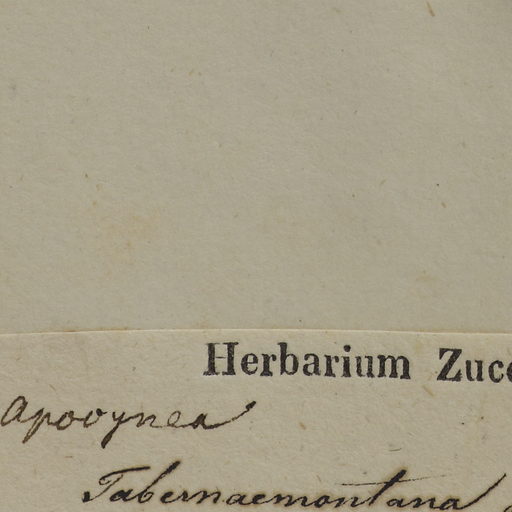 Herbarium Zucc
Apocynea
Tabernaemontana